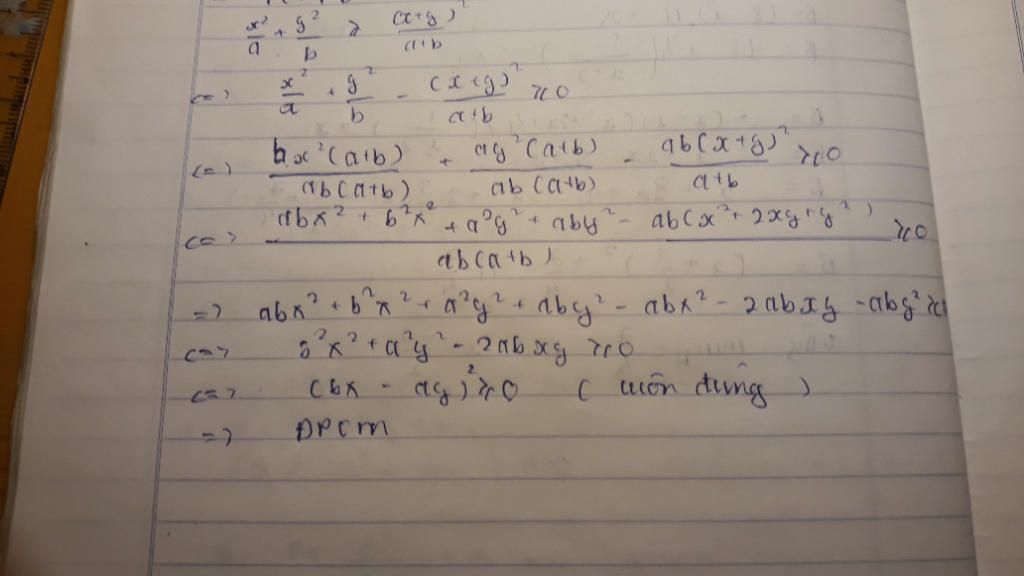 x²/a + y²/b ≥ (x+y)²/a+b
<=> x²/a + y²/b - (x+y)²/a+b ≥ 0
<=> bx²(a+b)/ab(a+b) + ay²(a+b)/ab(a+b) - ab(x+y)²/a+b ≥ 0
<=> abx² + b²x² + a²y² + aby² - ab(x² + 2xy + y²)/ab(a+b) ≥ 0
=> abx² + b²x² + a²y² + aby² - abx² - 2abxy - aby² ≥
<=> b²x² + a²y² - 2abxy ≥ 0
<=> (bx - ay)² ≥ 0 ( luôn đúng )
=> DPCM